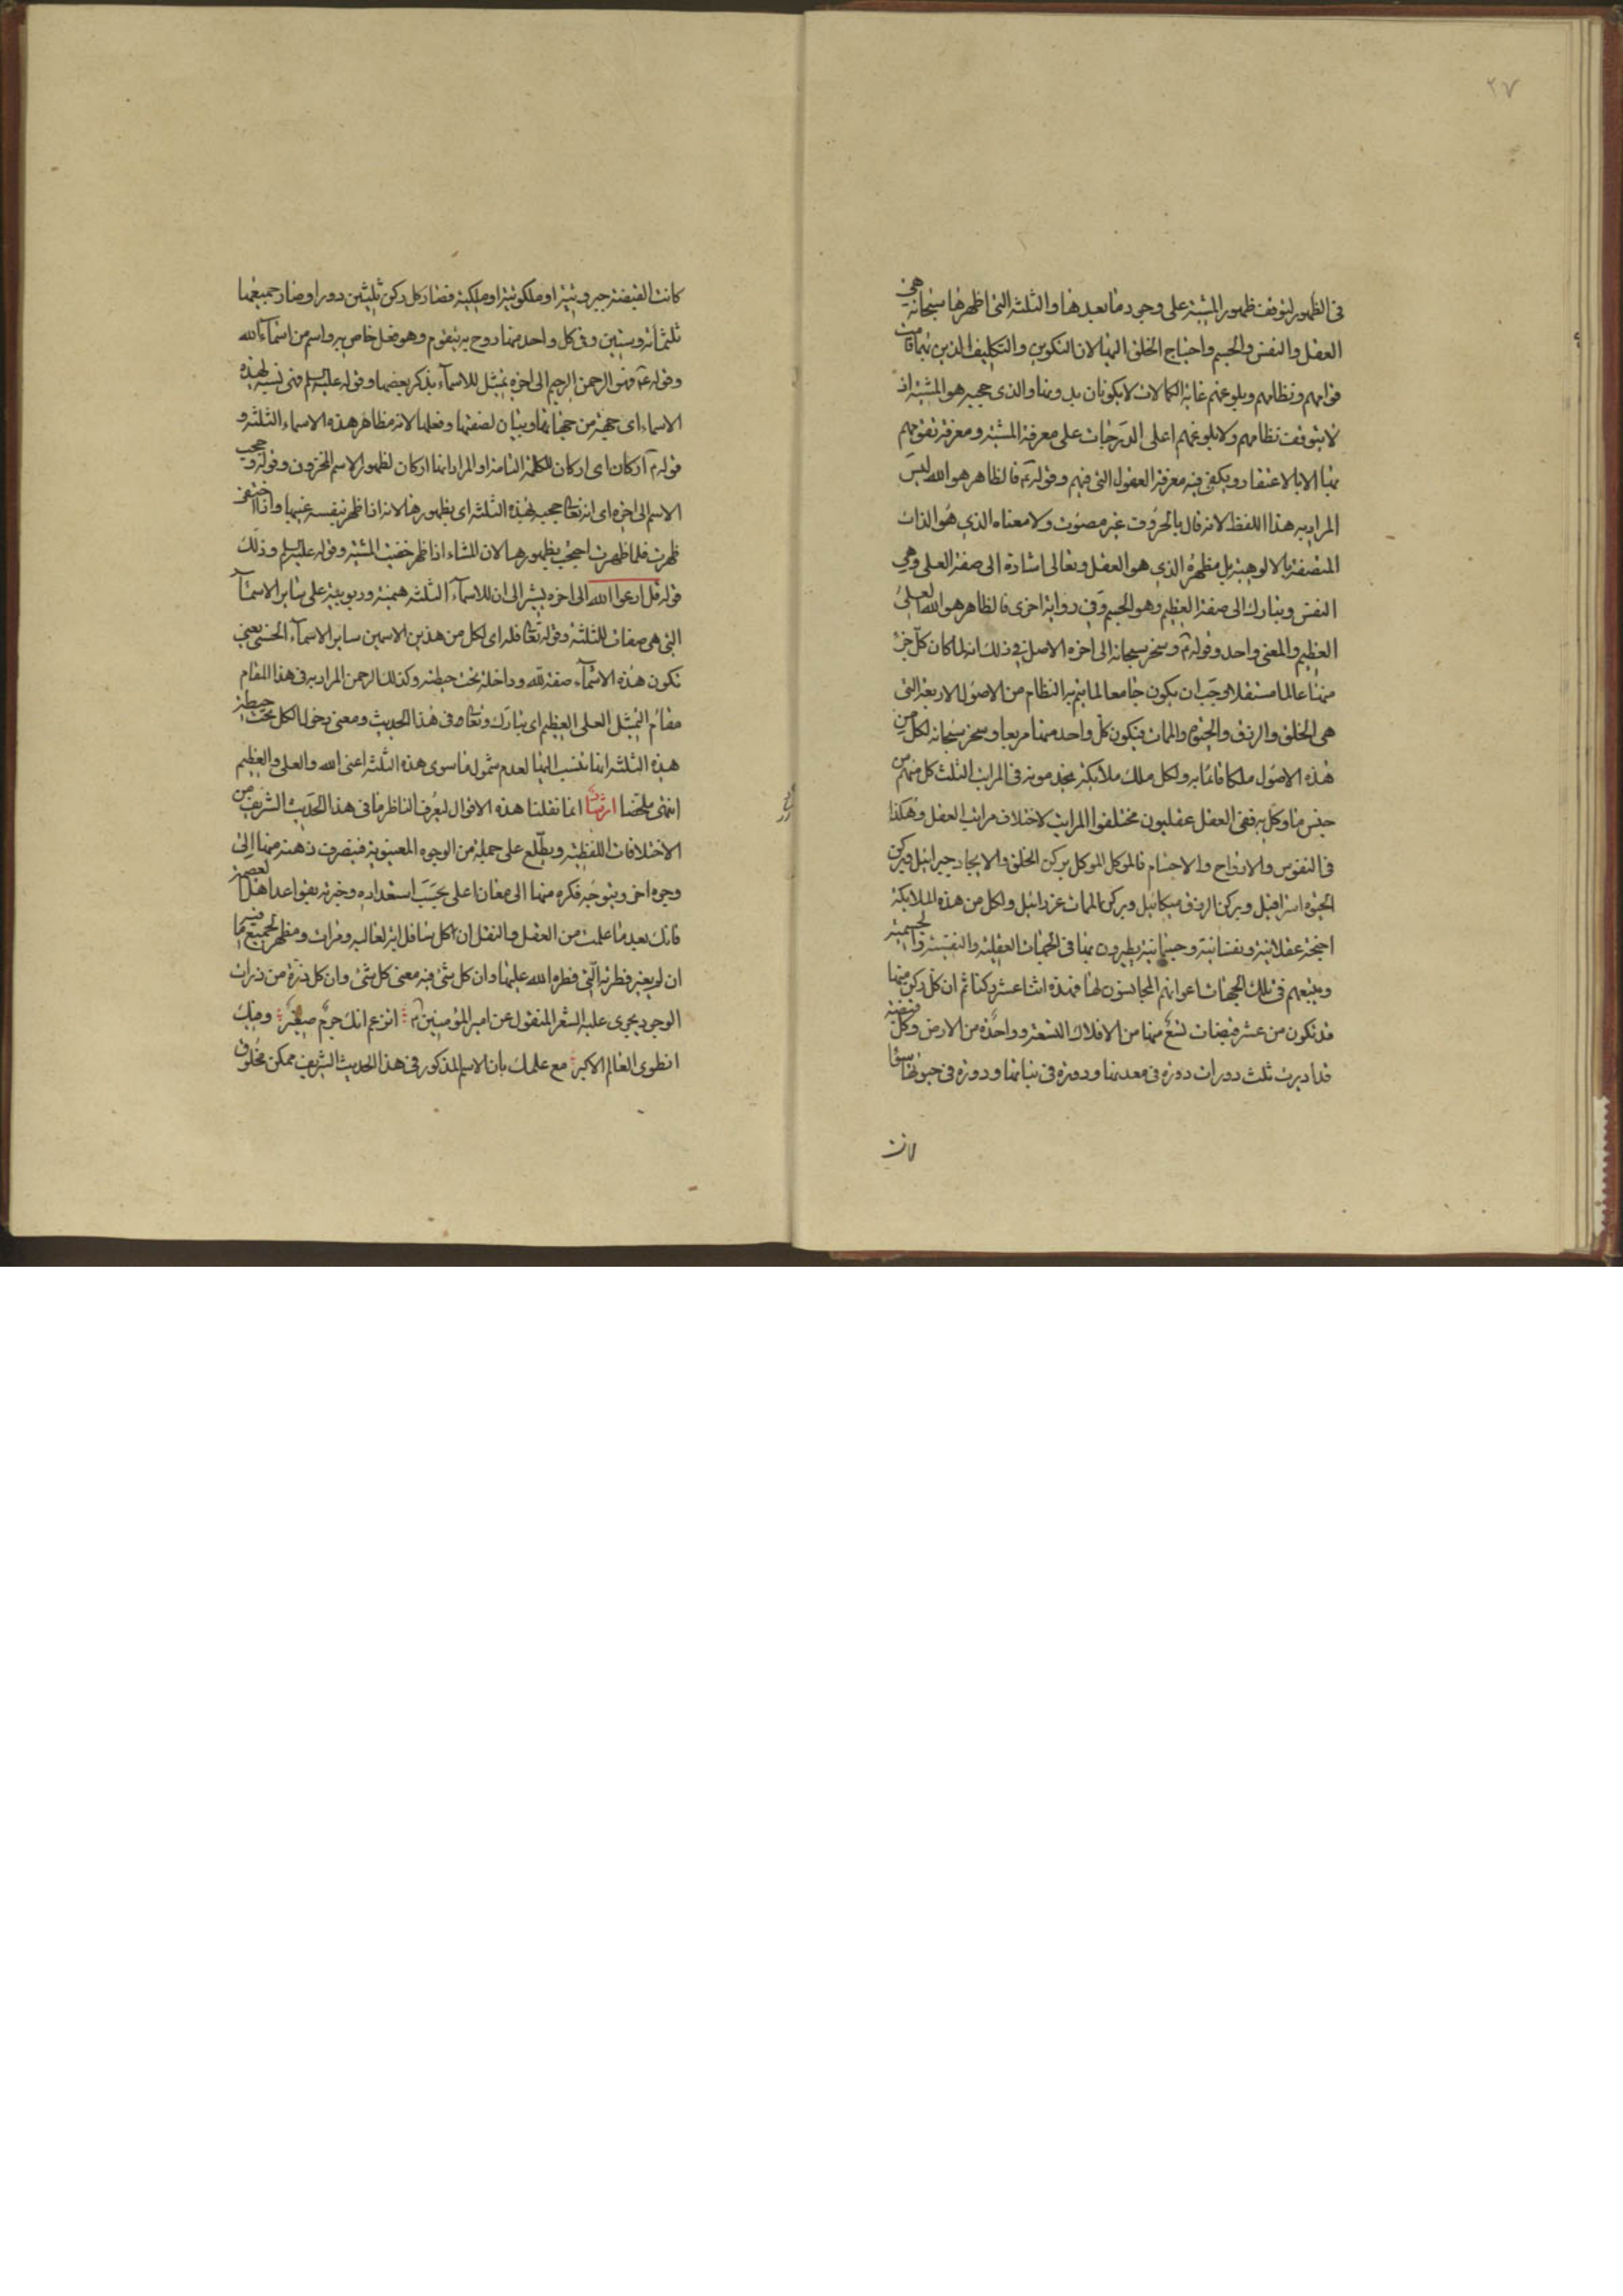 ٢٧
فى الظهور لتوقف ظهور المشية على وجود ما بعدها والثلثة التى اظهرها سبحانه هى
العقل والنفس والجسم واحتياج الخلق اليها لان التكوين والتكليف الذين بهما قامت
قوامهم ونظامهم وبلوغهم غاية الكمالات لا يكونان بدونها والذى حجبه هو المشية اذ
لا يتوقف نظامهم ولا بلوغهم اعلى الدرجات على معرفة المشية ومعرفة تقومهم
بها الا بالاعتقاد ويكفى فيه معرفة العقول التى فيهم وقوله ع فالظاهر هو الله ليس
المراد به هذا اللفظ لانه قال بالحروف غير مصوت ولا معناه الذى هو الذات
المتصفة بالالوهية بل مظهره الذى هو العقل وتعالى اشارة الى صفة العلى وهى
النفس وتبارك الى صفة العظيم وهو الجسم وفى رواية اخرى فالظاهر هو الله العلى
العظيم والمعنى واحد وقوله ع وسخر سبحانه الى اخره الاصل فى ذلك انه لما كان كل جزء
منها عالما مستقلا وجب ان يكون جامعا لما يتم به النظام من الاصول الاربعة التى
هى الخلق والرزق والحيوة والممات فيكون كل واحد منها مربعا وسخر سبحانه لكل من
هذه الاصول ملكا قائما به ولكل ملك ملائكة يخدمونه فى المراتب الثلث كل منهم من
جنس ما وكل به ففى العقل عقليون مختلفوا المراتب لاختلاف مراتب العقل وهكذا
فى النفوس والارواح والاجسام فالموكل الموكل بركن الخلق والايجاد جبرائيل وبركن
الحيوة اسرافيل وبركن الرزق ميكائيل وبركن الممات عزرائيل ولكل من هذه الملائكة
اجنحة عقلانية ونفسانية وجسمانية يطيرون بها فى الجهات العقلية والنفسية والجسمية
ويتبعهم فى تلك الجهات اعوانهم المجانسون لها فهذه اثنا عشر ركنا ثم ان كل ركن منها
قد تكون من عشر قبضات تسع منها من الافلاك التسعة وواحدة من الارض وكل قبضة
قد اديرت ثلث دورات دورة فى معدنها ودورة فى نباتها ودورة فى حيوتها سواء
كانت
كانت القبضة جبروتية او ملكوتية او ملكية فصار كل ركن ثلثين دورا وصار جميعها
ثلثمائة وستين وفى كل واحد منها روح به يتقوم وهو فعل خاص به واسم من اسماء الله
وقوله ع فهو الرحمن الرحيم الى اخره تمثل للاسماء بذكر بعضها وقوله عليه السلم فهى نسبة لهذه
الاسماء اى جهة من جهاتها وبيان لصفتها وفعلها لانه مظاهر هذه الاسماء الثلثة و
قوله ع اركان اى اركان للكلمة التامة او المراد انها اركان لظهور الاسم المخزون وقوله وحجب
الاسم الى اخره اى انه تعا حجبه بهذه الثلثة اى بظهورها لانه اذا ظهر بنفسه غيبها واذا اختفى
ظهرت فلما ظهرت احتجب بظهورها لان المشاء اذا ظهر خفيت المشية وقوله عليه السلم وذلك
قوله قل ادعوا الله الى اخره يشير الى ان للاسماء الثلثة هيمنة وربوبية على سائر الاسماء
التى هى صفات للثلثة وقوله تعا فله اى لكل من هذين الاسمين سائر الاسماء الحسنى يعنى
تكون هذه الاسماء صفة لله وداخلة تحت حيطته وكذلك الرحمن المراد به فى هذا المقام
مقام التمثل العلى العظيم اى تبارك وتعا فى هذا الحديث ومعنى دخول الكل تحت حيطة
هذه الثلثة انها تنسب اليها لعدم شمول ما سوى هذه الثلثة اعنى الله والعلى والعظيم
انتهى ملخصا ارشاد انما نقلنا هذه الاقوال ليعرف الناظر ما فى هذا الحديث الشريف من
الاختلافات اللفظية ويطلع على جملة من الوجوه المعنوية فيتصرف ذهنه منها الى
وجوه اخر ويتوجه فكره منها الى معان اعلى بحسب استعداده وخبرته بقواعد اهل العصمة
فانك بعد ما علمت من العقل والنقل ان كل سافل اية لعاليه ومرات ومظهر لجميع ما فيه
ان لم يغير فطرته التى فطره الله عليها وان كل شئ فيه معنى كل شئ وان كل ذرة من ذرات
الوجود يجرى عليه الشعر المنقول عن امير المؤمنين ع اتزعم انك جرم صغير وفيك
انطوى العالم الاكبر مع علمك بان الاسم المذكور فى هذا الحديث الشريف ممكن مخلوق